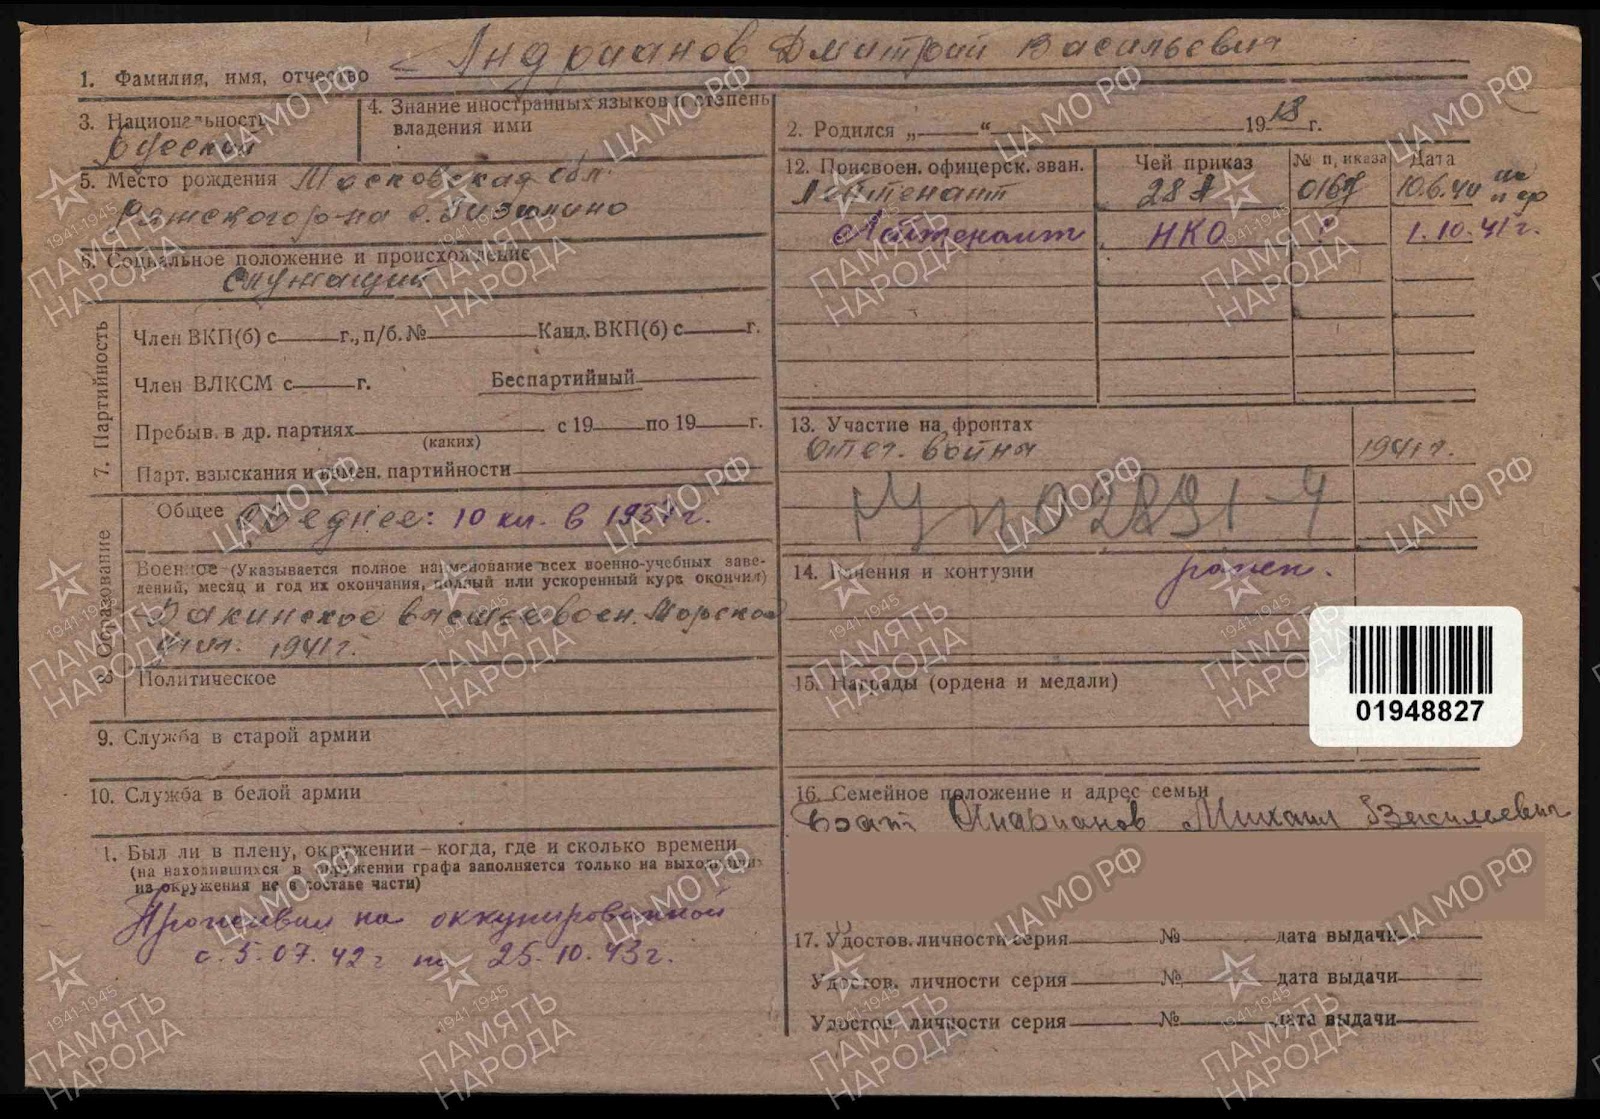 1. Фамилия, имя, отчество Андрианов Дмитрий Васильевич
2. Родился „ “ 1918 г.
3. Национальность
Русский
4. Знание иностранных языков и степень
владения ими
5. Место рождения Московская обл.
р-на с.
6. Социальное положение и происхождение
Служащий
7. Партийность
Член ВКП(б) с г., п/б. № Канд. ВКП(б) с г.
Член ВЛКСМ с г. Беспартийный
Пребыв. в др. партиях с 19 по 19 г.
(каких)
Парт. взыскания и измен. партийности
8. Образование
Общее Среднее: 10 кл. в 1937 г.
Военное (Указывается полное наименование всех военно-учебных заве-
дений, месяц и год их окончания, полный или ускоренный курс окончил)
Бакинское высшее воен. Морское
учил. 1941 г.
Политическое
9. Служба в старой армии
10. Служба в белой армии
1. Был ли в плену, окружении – когда, где и сколько времени
(на находившихся в окружении графа заполняется только на выходивших
из окружения не в составе части)
Проживал на оккупированной
с. 5.07.42 г по 25.10.43 г.
12. Присвоен. офицерск. зван. Чей приказ № приказа Дата
Лейтенант 28 А 0167 10.6.42
Лейтенант НКО ? 1.10.41 г.
13. Участие на фронтах
Отеч. войны 1941 г.
02891-4
14. Ранения и контузии ранен.
15. Награды (ордена и медали)
01948827
16. Семейное положение и адрес семьи
Брат Андрианов Михаил Васильевич
17. Удостов. личности серия № дата выдачи
Удостов. личности серия № дата выдачи
Удостов. личности серия № дата выдачи
ЦАМО РФ
1941-1945
ПАМЯТЬ
НАРОДА